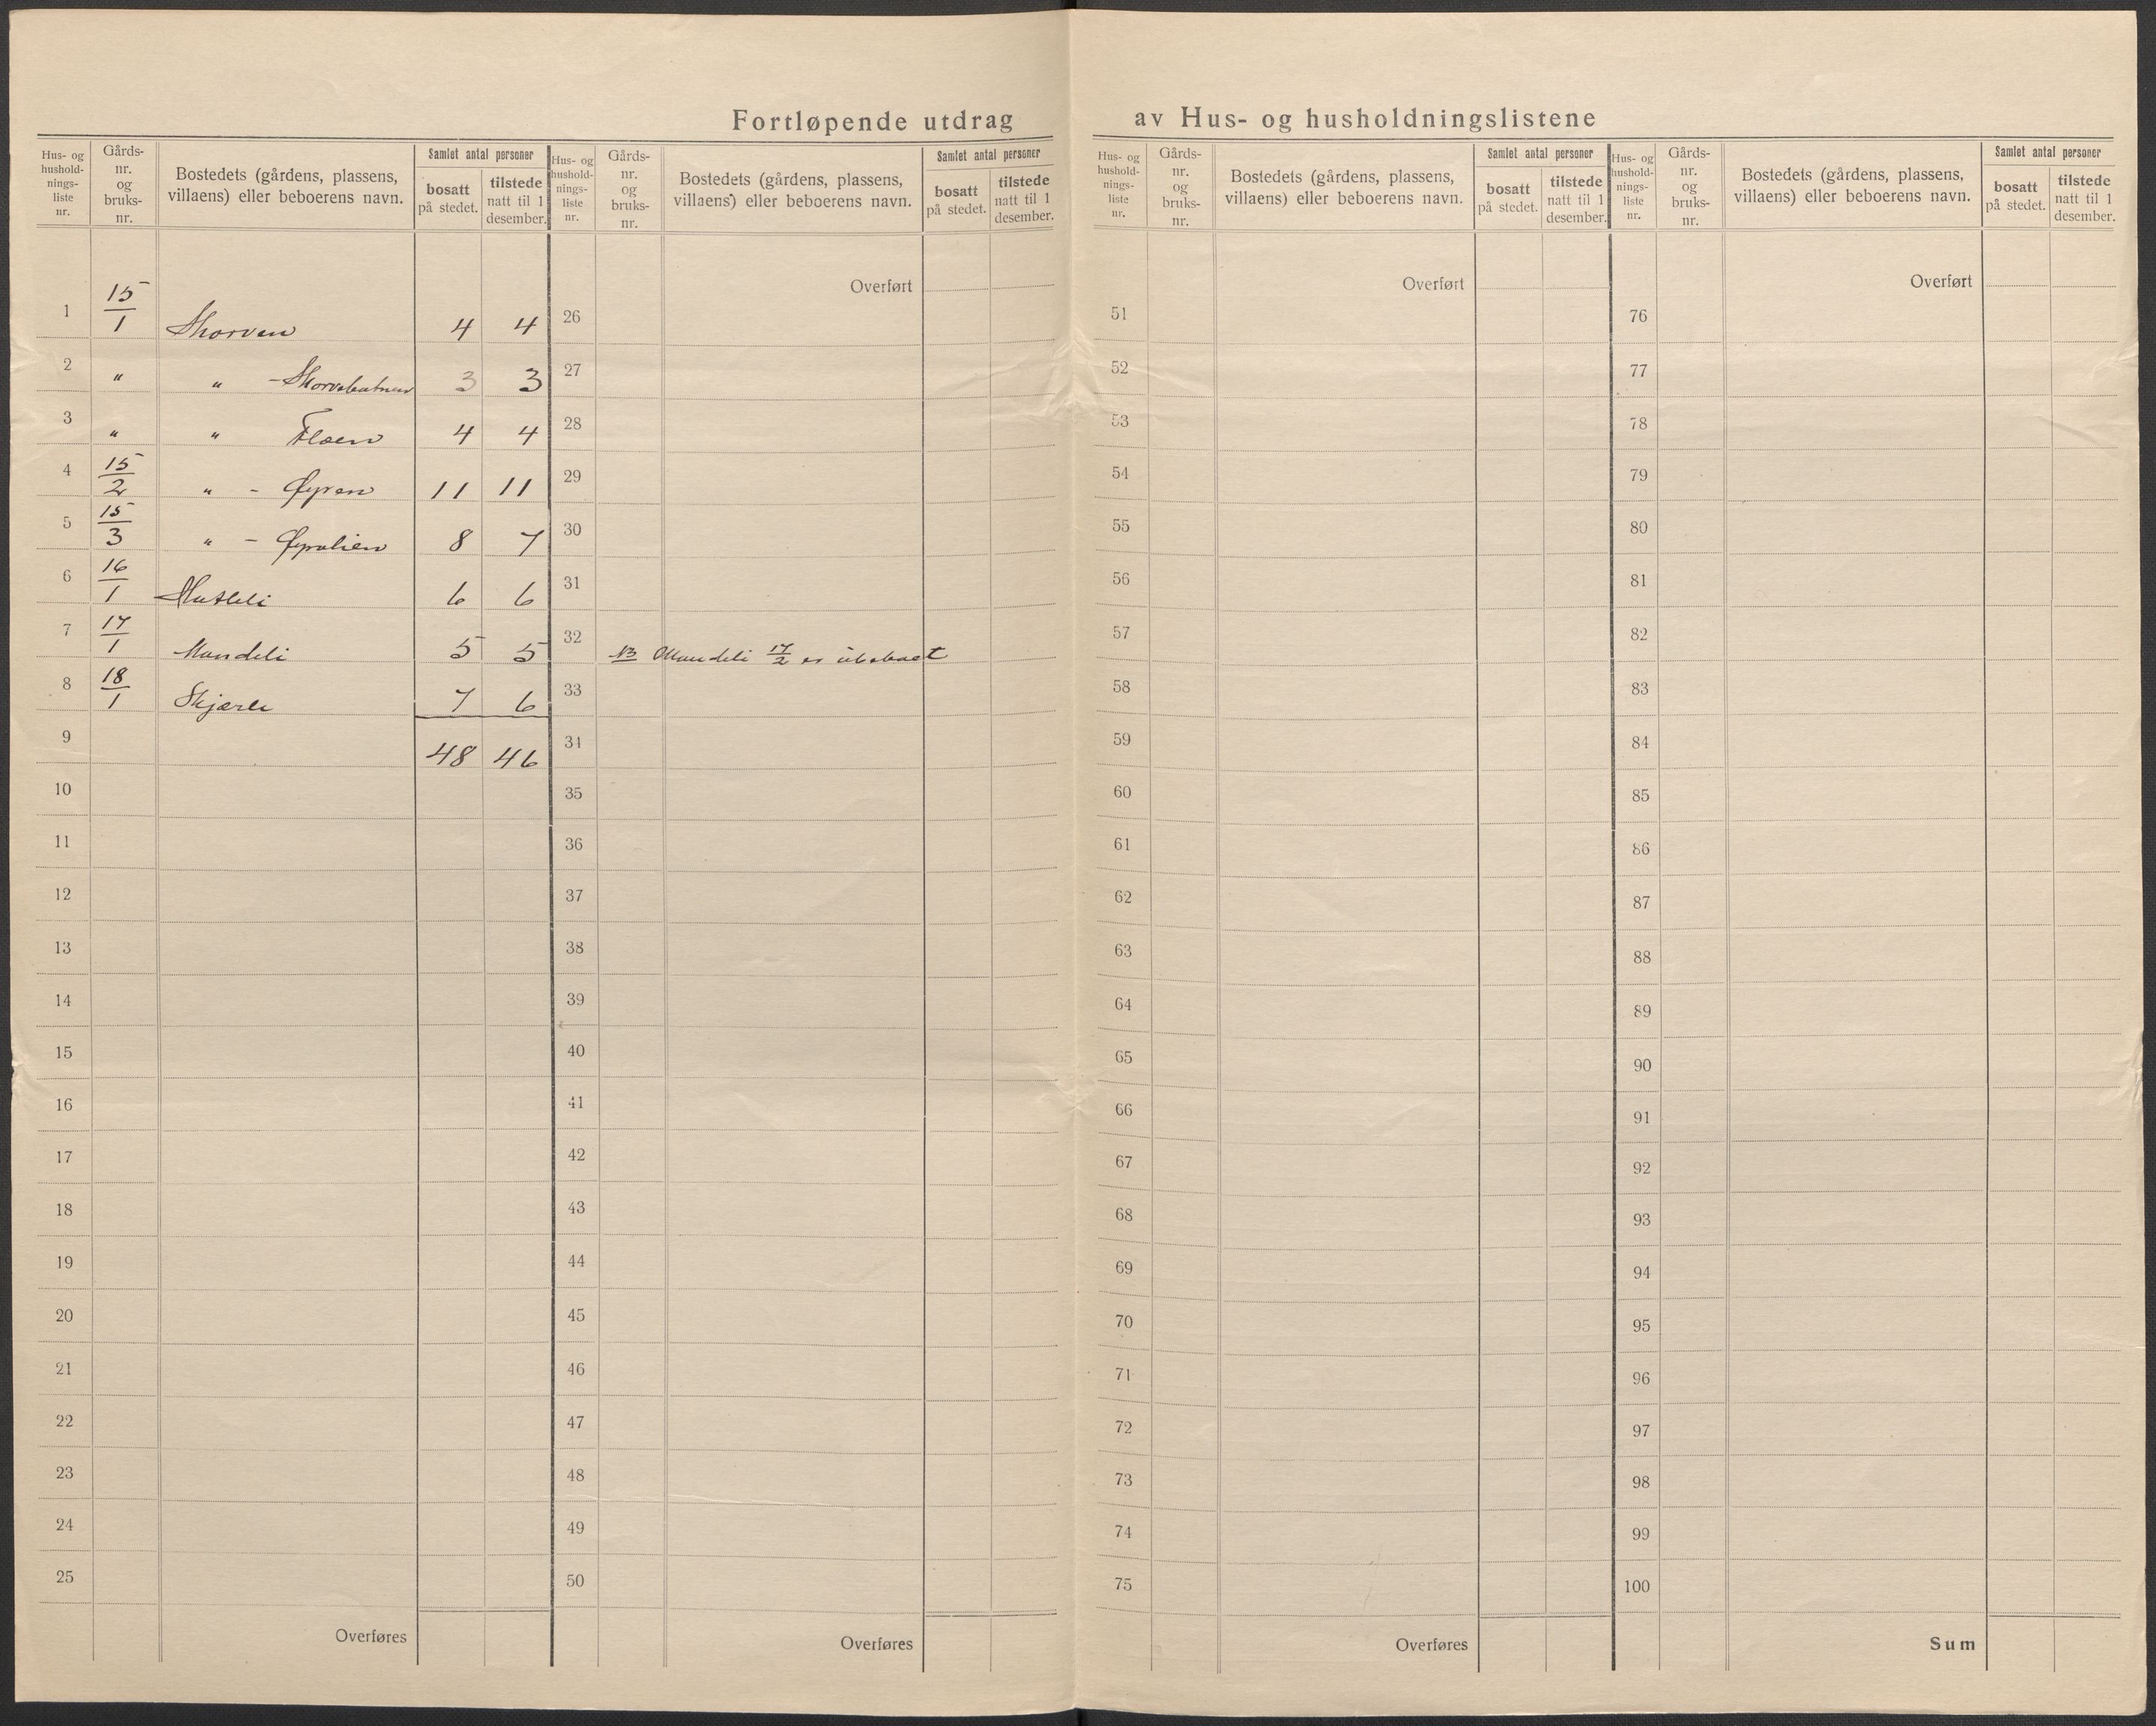 Fortløpende utdrag av Hus- og husholdningslistene
Hus- og hushold-nings-liste nr. | Gårds-nr. og bruks-nr. | Bostedets (gårdens, plassens, villaens) eller beboerens navn. | Samlet antal personer | bosatt på stedet. | tilstede natt til 1 desember.
1 15/1 Skorven 4 4
2 " " - Skorvebotnen 3 3
3 " " Floen 4 4
4 15/2 " - Øyren 11 11
5 15/3 " - Øyralien 8 7
6 16/1 Husleli 6 6
7 17/1 Mandeli 5 5
8 18/1 Skjærli 7 6
9 48 46
10
11
12
13
14
15
16
17
18
19
20
21
22
23
24
25
Overføres
Hus- og hushold-nings-liste nr. | Gårds-nr. og bruks-nr. | Bostedets (gårdens, plassens, villaens) eller beboerens navn. | Samlet antal personer | bosatt på stedet. | tilstede natt til 1 desember.
Overført
26
27
28
29
30
31
32 NB Mandeli 17/2 er ubeboet
33
34
35
36
37
38
39
40
41
42
43
44
45
46
47
48
49
50
Overføres
Hus- og hushold-nings-liste nr. | Gårds-nr. og bruks-nr. | Bostedets (gårdens, plassens, villaens) eller beboerens navn. | Samlet antal personer | bosatt på stedet. | tilstede natt til 1 desember.
Overført
51
52
53
54
55
56
57
58
59
60
61
62
63
64
65
66
67
68
69
70
71
72
73
74
75
Overføres
Hus- og hushold-nings-liste nr. | Gårds-nr. og bruks-nr. | Bostedets (gårdens, plassens, villaens) eller beboerens navn. | Samlet antal personer | bosatt på stedet. | tilstede natt til 1 desember.
Overført
76
77
78
79
80
81
82
83
84
85
86
87
88
89
90
91
92
93
94
95
96
97
98
99
100
Sum